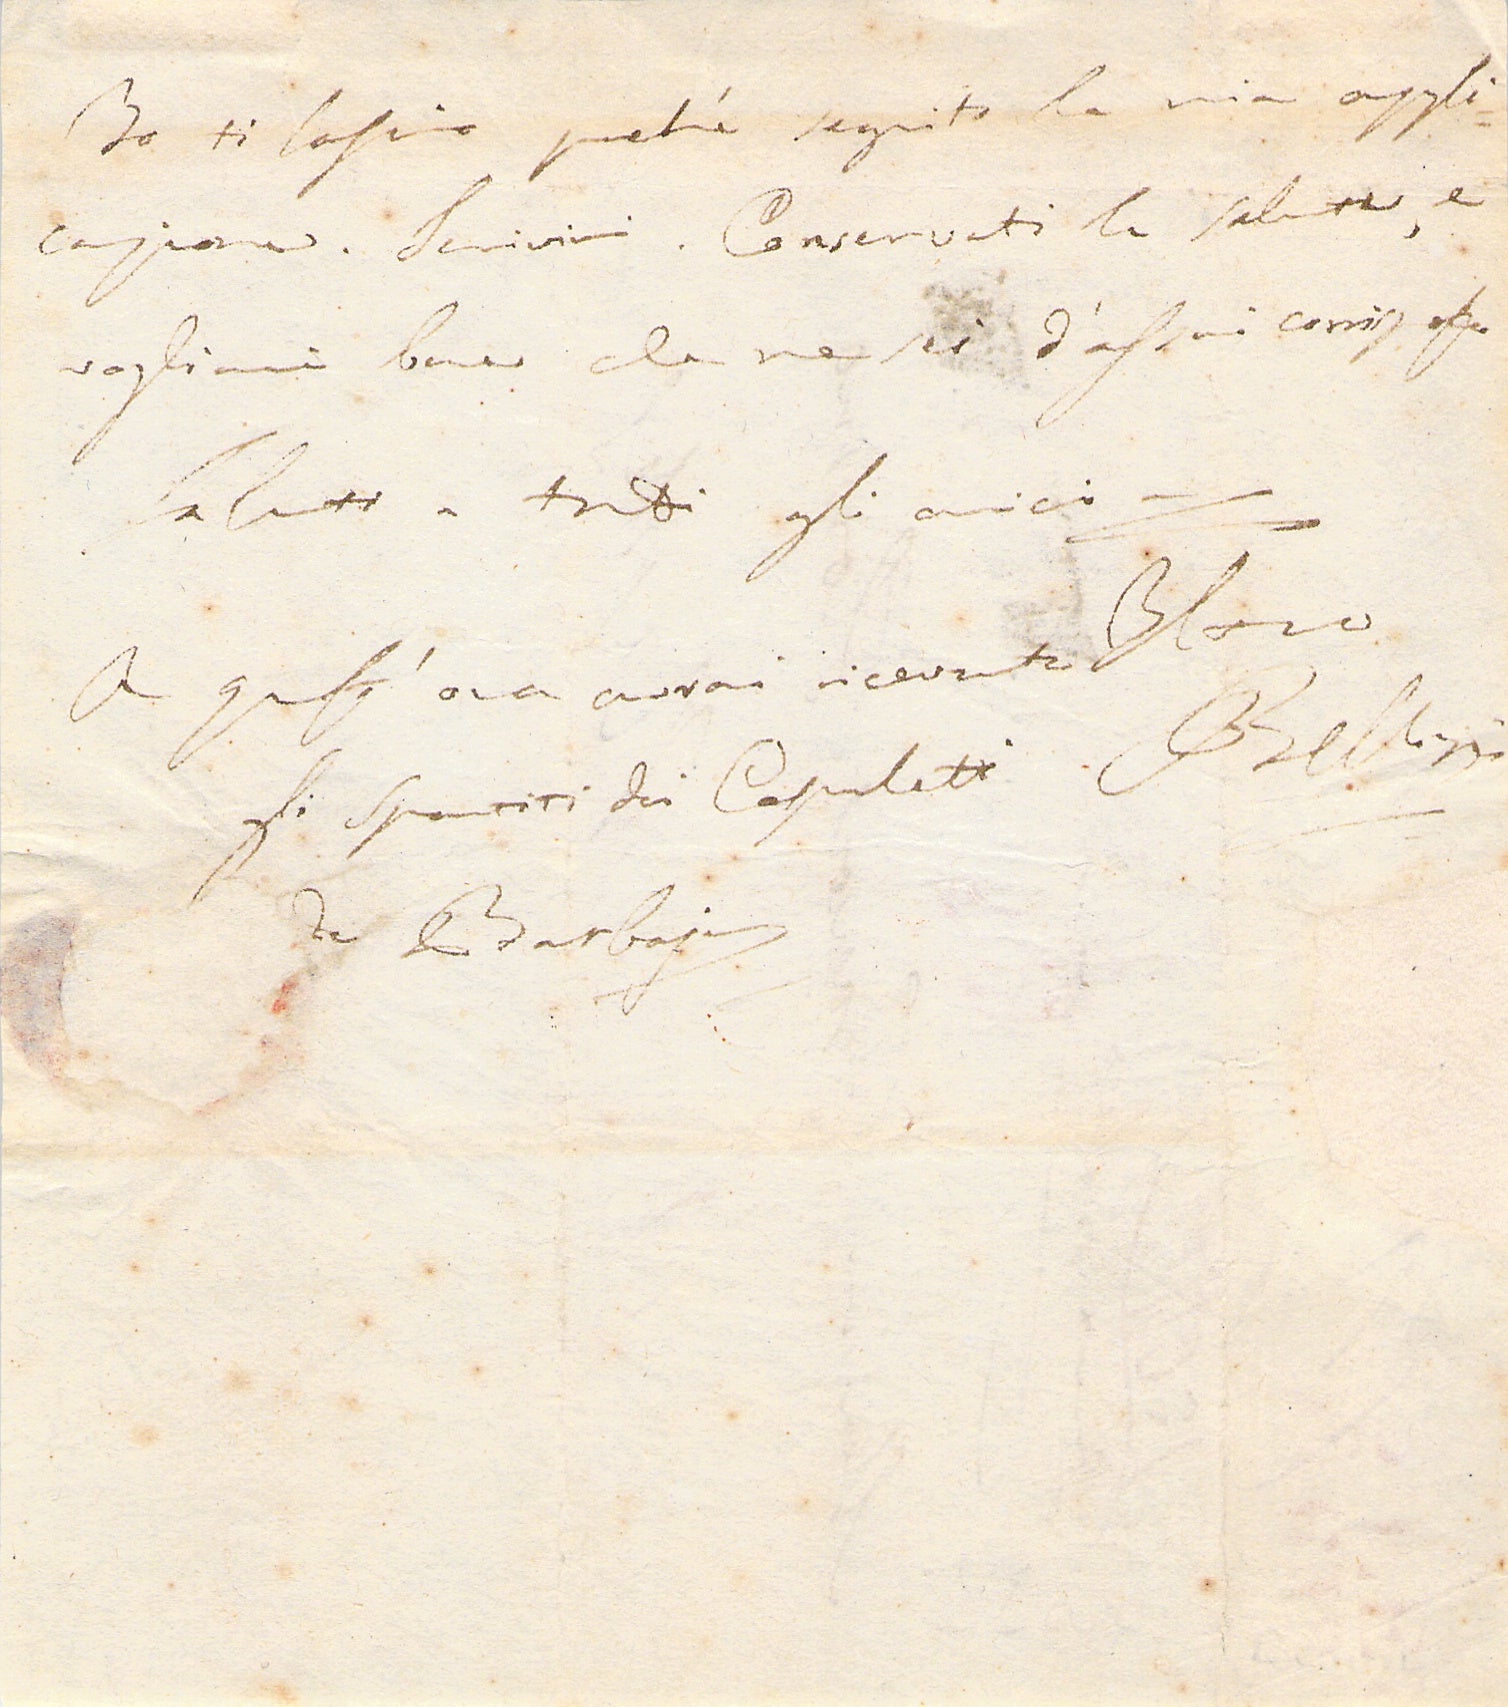 Io ti lascio perchè seguito la mia appli=
cazione. Scrivimi. Conservati la salute, e
vogliami bene che ne sei d'assai corrisposto
Saluti a tutti gli amici
A quest'ora avrai ricevuto
Bellini
gli spartiti dei Capuletti
da Barbaja